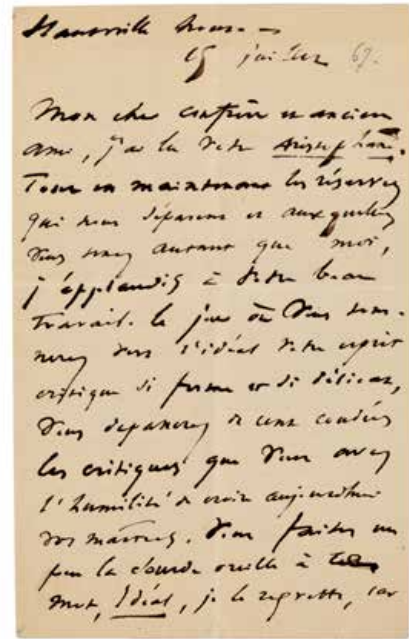 Hauteville house —
15 juillet 67.
Mon cher confrère et ancien
ami, j'ai lu votre Aristophane.
Tout en maintenant les réserves
qui nous séparent et auxquelles
vous tenez autant que moi,
j'applaudis à votre beau
travail. le jour où vous tour-
nerez vers l'idéal votre esprit
critique si ferme et si délicat,
vous dépasserez de cent coudées
les critiques que vous avez
l'humilité de croire aujourd'hui
vos maîtres. Vous faites un
peu la sourde oreille à ce
mot, Idéal, je le regrette, car